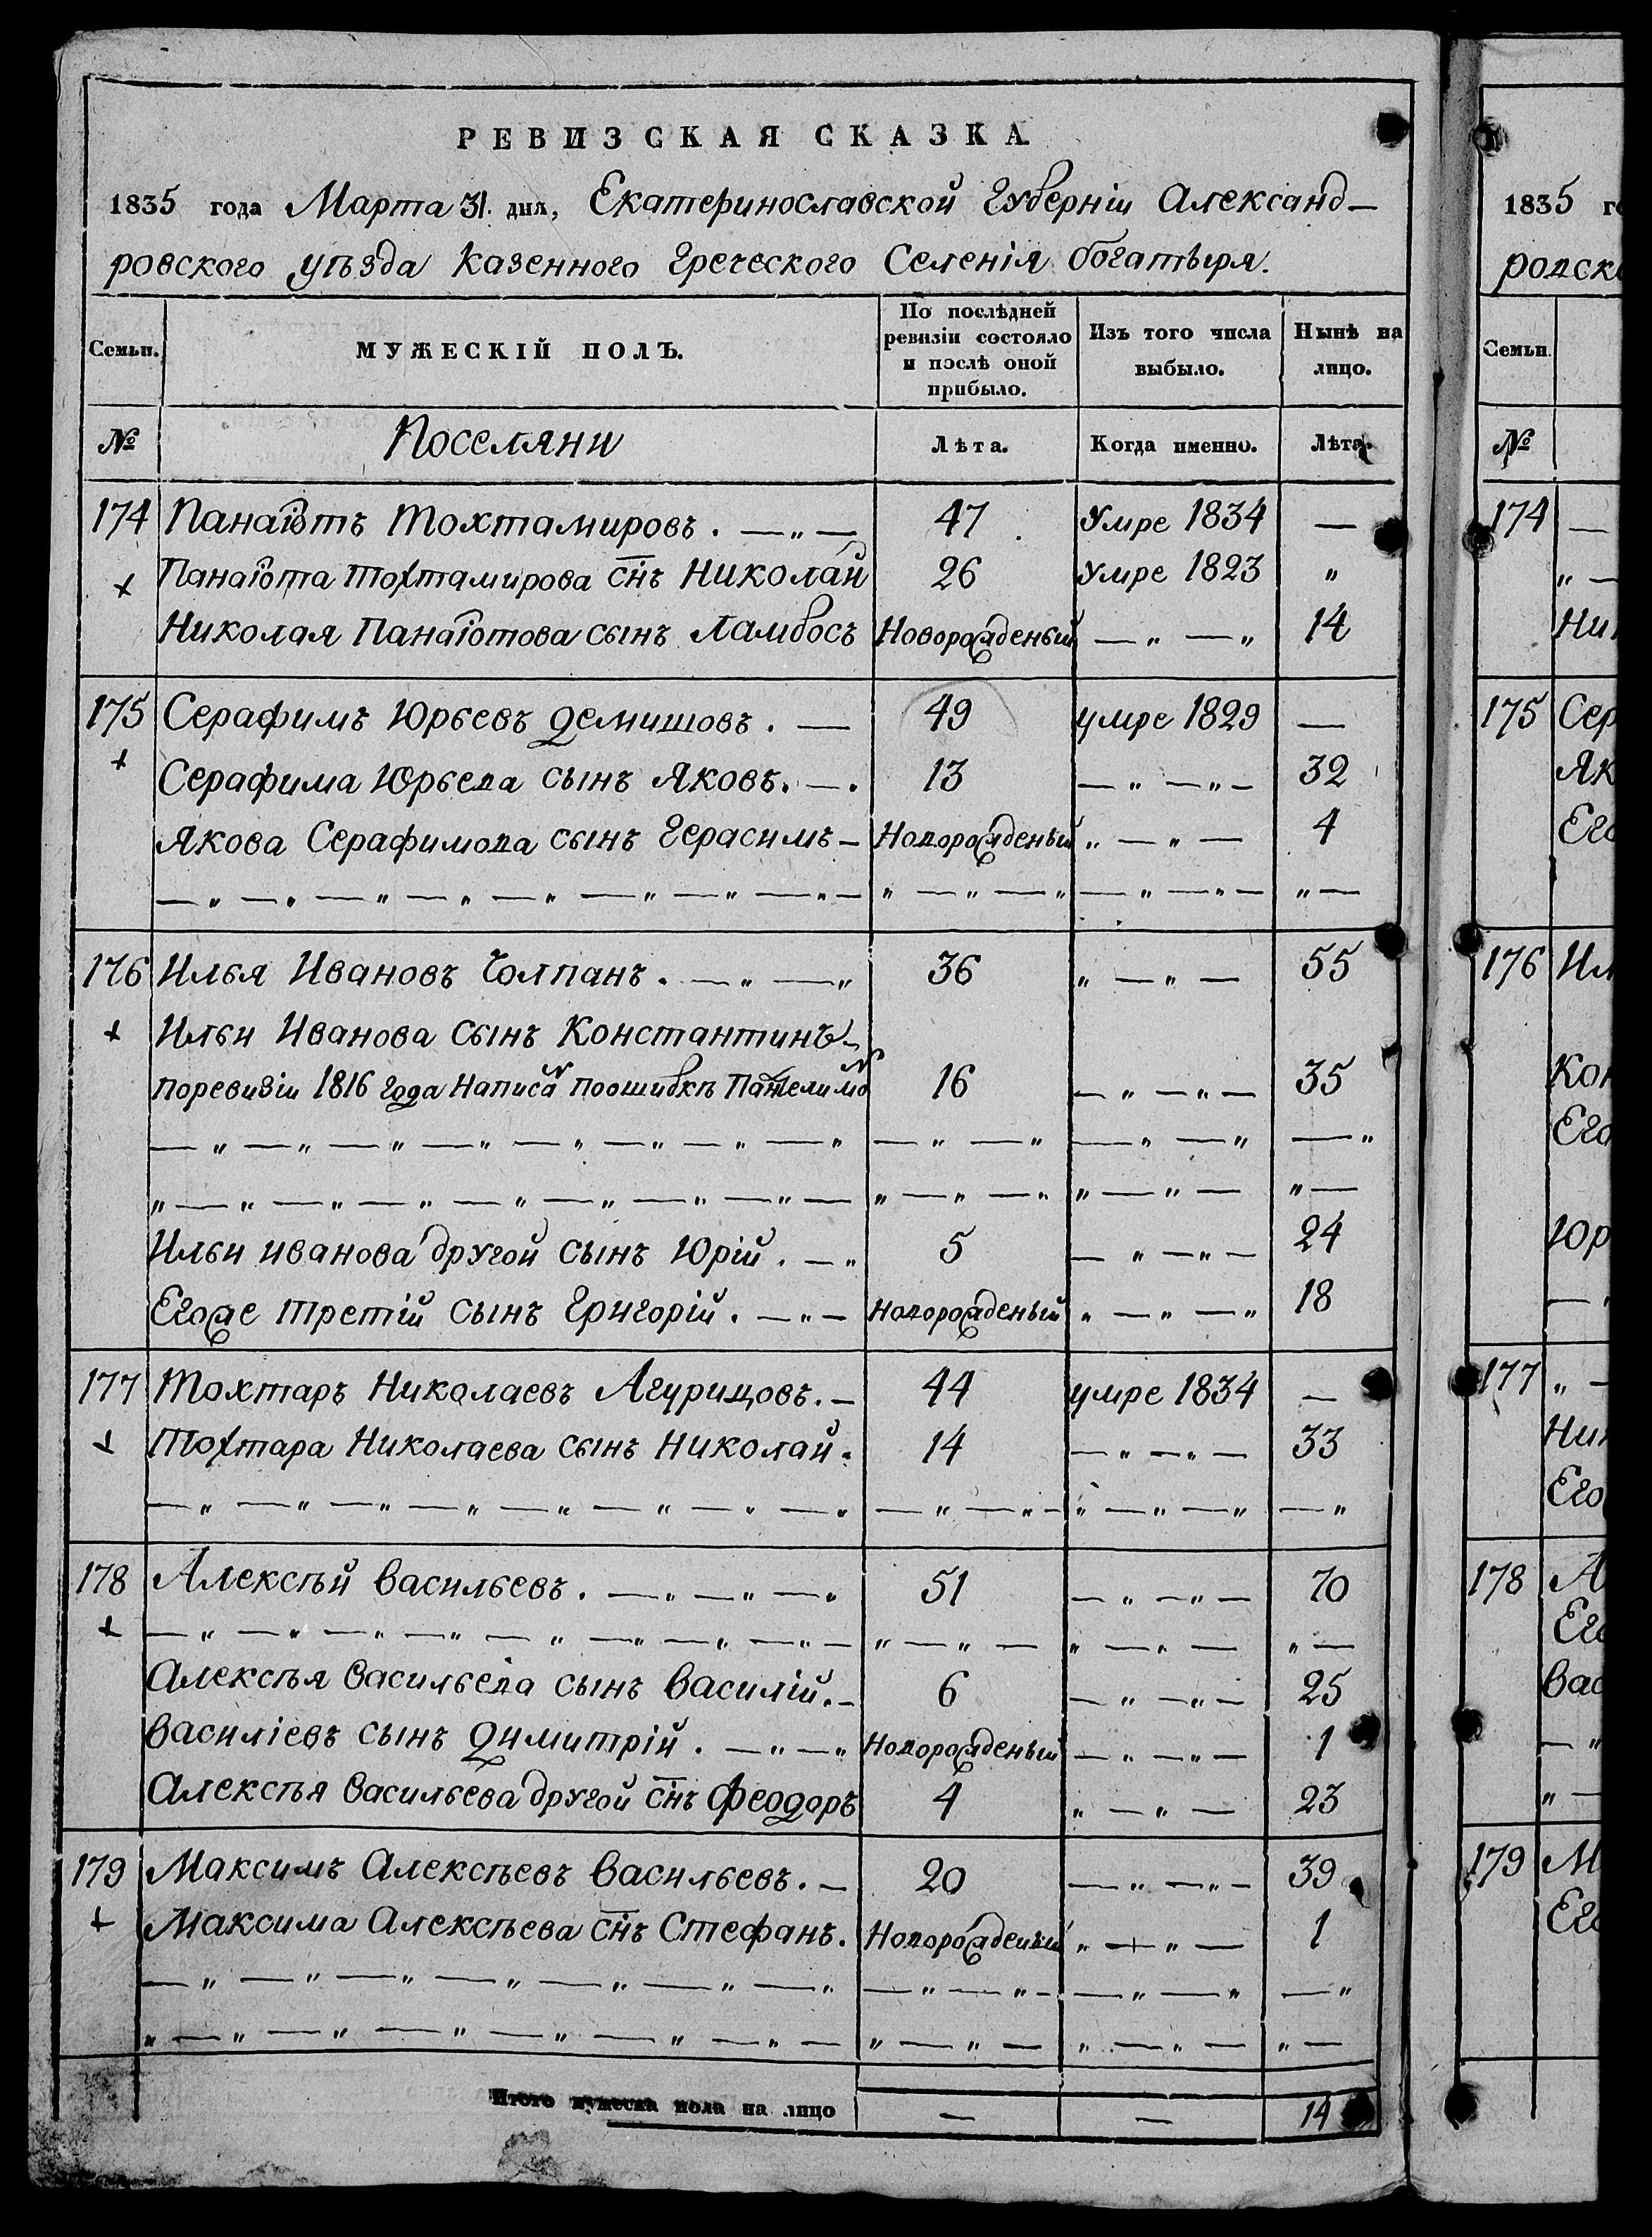 РЕВИЗСКАЯ СКАЗКА
1835 года Марта 31. дня, Екатеринославской Губерніи Александ-
ровского уѣзда Казенного Греческого Селенія Богатыря.
Семьи. МУЖЕСКІЙ ПОЛЪ. По послѣдней ревизіи состояло и послѣ оной прибыло. Изъ того числа выбыло. Нынѣ на лицо.
№ Поселяни Лѣта. Когда именно. Лѣта.
174 Панаіотъ Тохтамировъ. — „ — 47 Умре 1834 —
+ Панаіота Тохтамирова снъ Николай 26 Умре 1823 „
Николая Панаіотова сынъ Ламбосъ Новорожденый — „ — „ 14
175 Серафимъ Юрьевъ Демишовъ. — 49 умре 1829 —
+ Серафима Юрьева сынъ Яковъ. — . 13 — „ — „ — 32
Якова Серафимова сынъ Герасимъ — Новорожденый „ — „ — 4
— „ — „ — „ — „ — „ — „ — „ — „ — „ — „ — „ — „ — „ — „ —
176 Илья Ивановъ Чолпанъ. — „ — „ 36 „ — „ — 55
+ Ильи Иванова сынъ Константинъ —
поревизіи 1816 года Написан поошибкѣ Пантелимон 16 — „ — „ — 35
— „ — „ — „ — „ — „ — „ — „ — „ — „ — „ — „ — „ — „
„ — „ — „ — „ — „ — „ — „ — „ — „ — „ — „ „ — „ — „ —
Ильи Иванова другой сынъ Юрій. — „ 5 — „ — „ — 24
Егоже третій сынъ Григорій. — „ — Новорожденый „ — „ — „ 18
177 Тохтаръ Николаевъ Агурицовъ. — 44 умре 1834 —
+ Тохтара Николаева сынъ Николай. 14 — „ — „ — 33
— „ — „ — „ — „ — „ — „ — „ — „ — „ — „ — „ — „ — „ — „
178 Алексѣй Васильевъ. — „ — „ — „ 51 — „ — „ — 70
+ — „ — „ — „ — „ — „ — „ — „ — „ — „ — „ — „ — „ — „ —
Алексѣя Васильева сынъ Василій. — 6 — „ — „ — 25
Василіевъ сынъ Димитрій. — „ — „ Новорожденый — „ — „ — 1
Алексѣя Васильева другой снъ Феодоръ 4 „ — „ — 23
179 Максимъ Алексѣевъ Васильевъ. — 20 — „ — „ — 39
+ Максима Алексѣева снъ Стефанъ. Новорожденый „ — „ — 1
— „ — „ — „ — „ — „ — „ — „ — „ — „ — — „ — „ — „
„ — „ — „ — „ — „ — „ — „ — „ — „ — „ — „ — „ —
Итого мужеска пола на лицо — — 14
1835 го
родск
Семьи.
№
174 —
„ —
Ни
175 Сер
Як
Его
176 Ил
Кон
Его
Юр
—
177 „ —
Ник
Его
178 А
Его
Вас
— „
„ —
179 М
Его